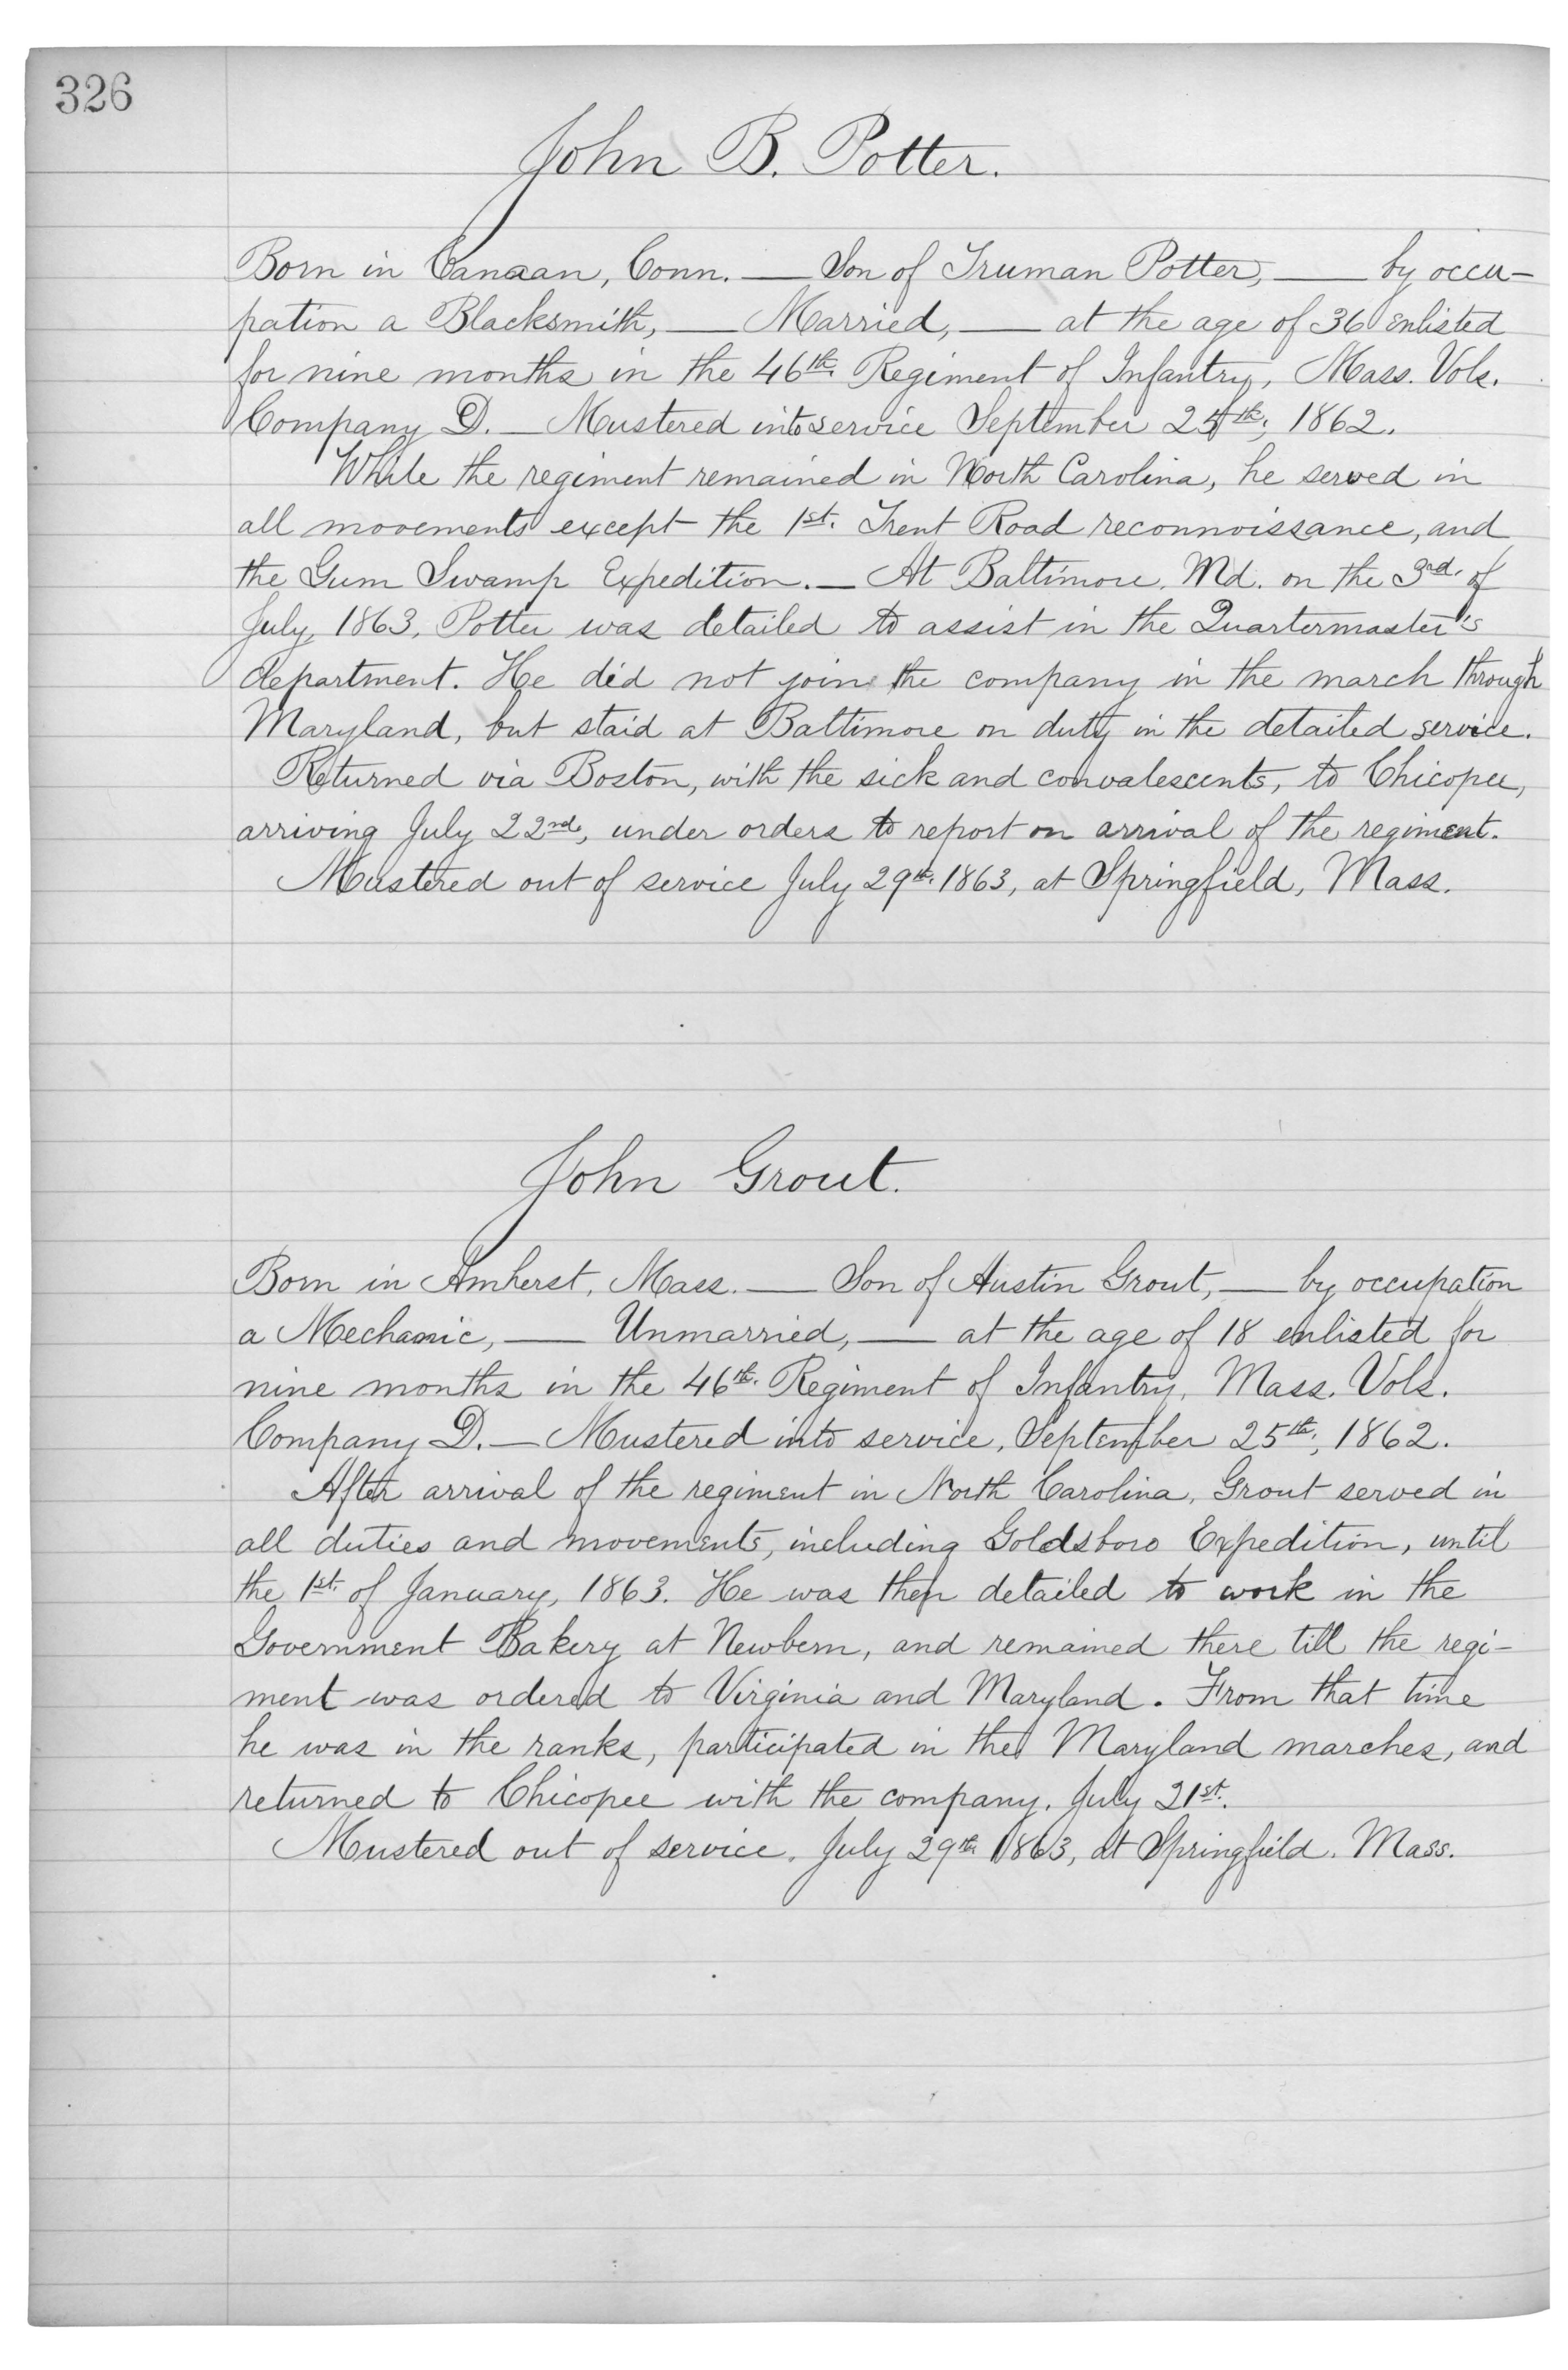 326
John B. Potter.
Born in Canaan, Conn. — Son of Truman Potter, — by occu-
pation a Blacksmith, — Married, — at the age of 36 enlisted
for nine months in the 46th. Regiment of Infantry, Mass. Vols.
Company D. — Mustered into service September 25th, 1862.
While the regiment remained in North Carolina, he served in
all movements except the 1st. Trent Road reconnoissance, and
the Gum Swamp Expedition. — At Baltimore, Md. on the 3rd. of
July, 1863, Potter was detailed to assist in the Quartermaster's
department. He did not join the company in the march through
Maryland, but staid at Baltimore on duty in the detailed service.
Returned via Boston, with the sick and convalescents, to Chicopee,
arriving July 22nd, under orders to report on arrival of the regiment.
Mustered out of service July 29th. 1863, at Springfield, Mass.
John Grout.
Born in Amherst, Mass. — Son of Austin Grout, — by occupation
a Mechanic, — Unmarried, — at the age of 18 enlisted for
nine months in the 46th. Regiment of Infantry, Mass. Vols.
Company D. — Mustered into service, September 25th, 1862.
After arrival of the regiment in North Carolina, Grout served in
all duties and movements, including Goldsboro Expedition, until
the 1st. of January, 1863. He was then detailed to work in the
Government Bakery at Newbern, and remained there till the regi-
ment was ordered to Virginia and Maryland. From that time
he was in the ranks, participated in the Maryland marches, and
returned to Chicopee with the company, July 21st.
Mustered out of service, July 29th 1863, at Springfield, Mass.